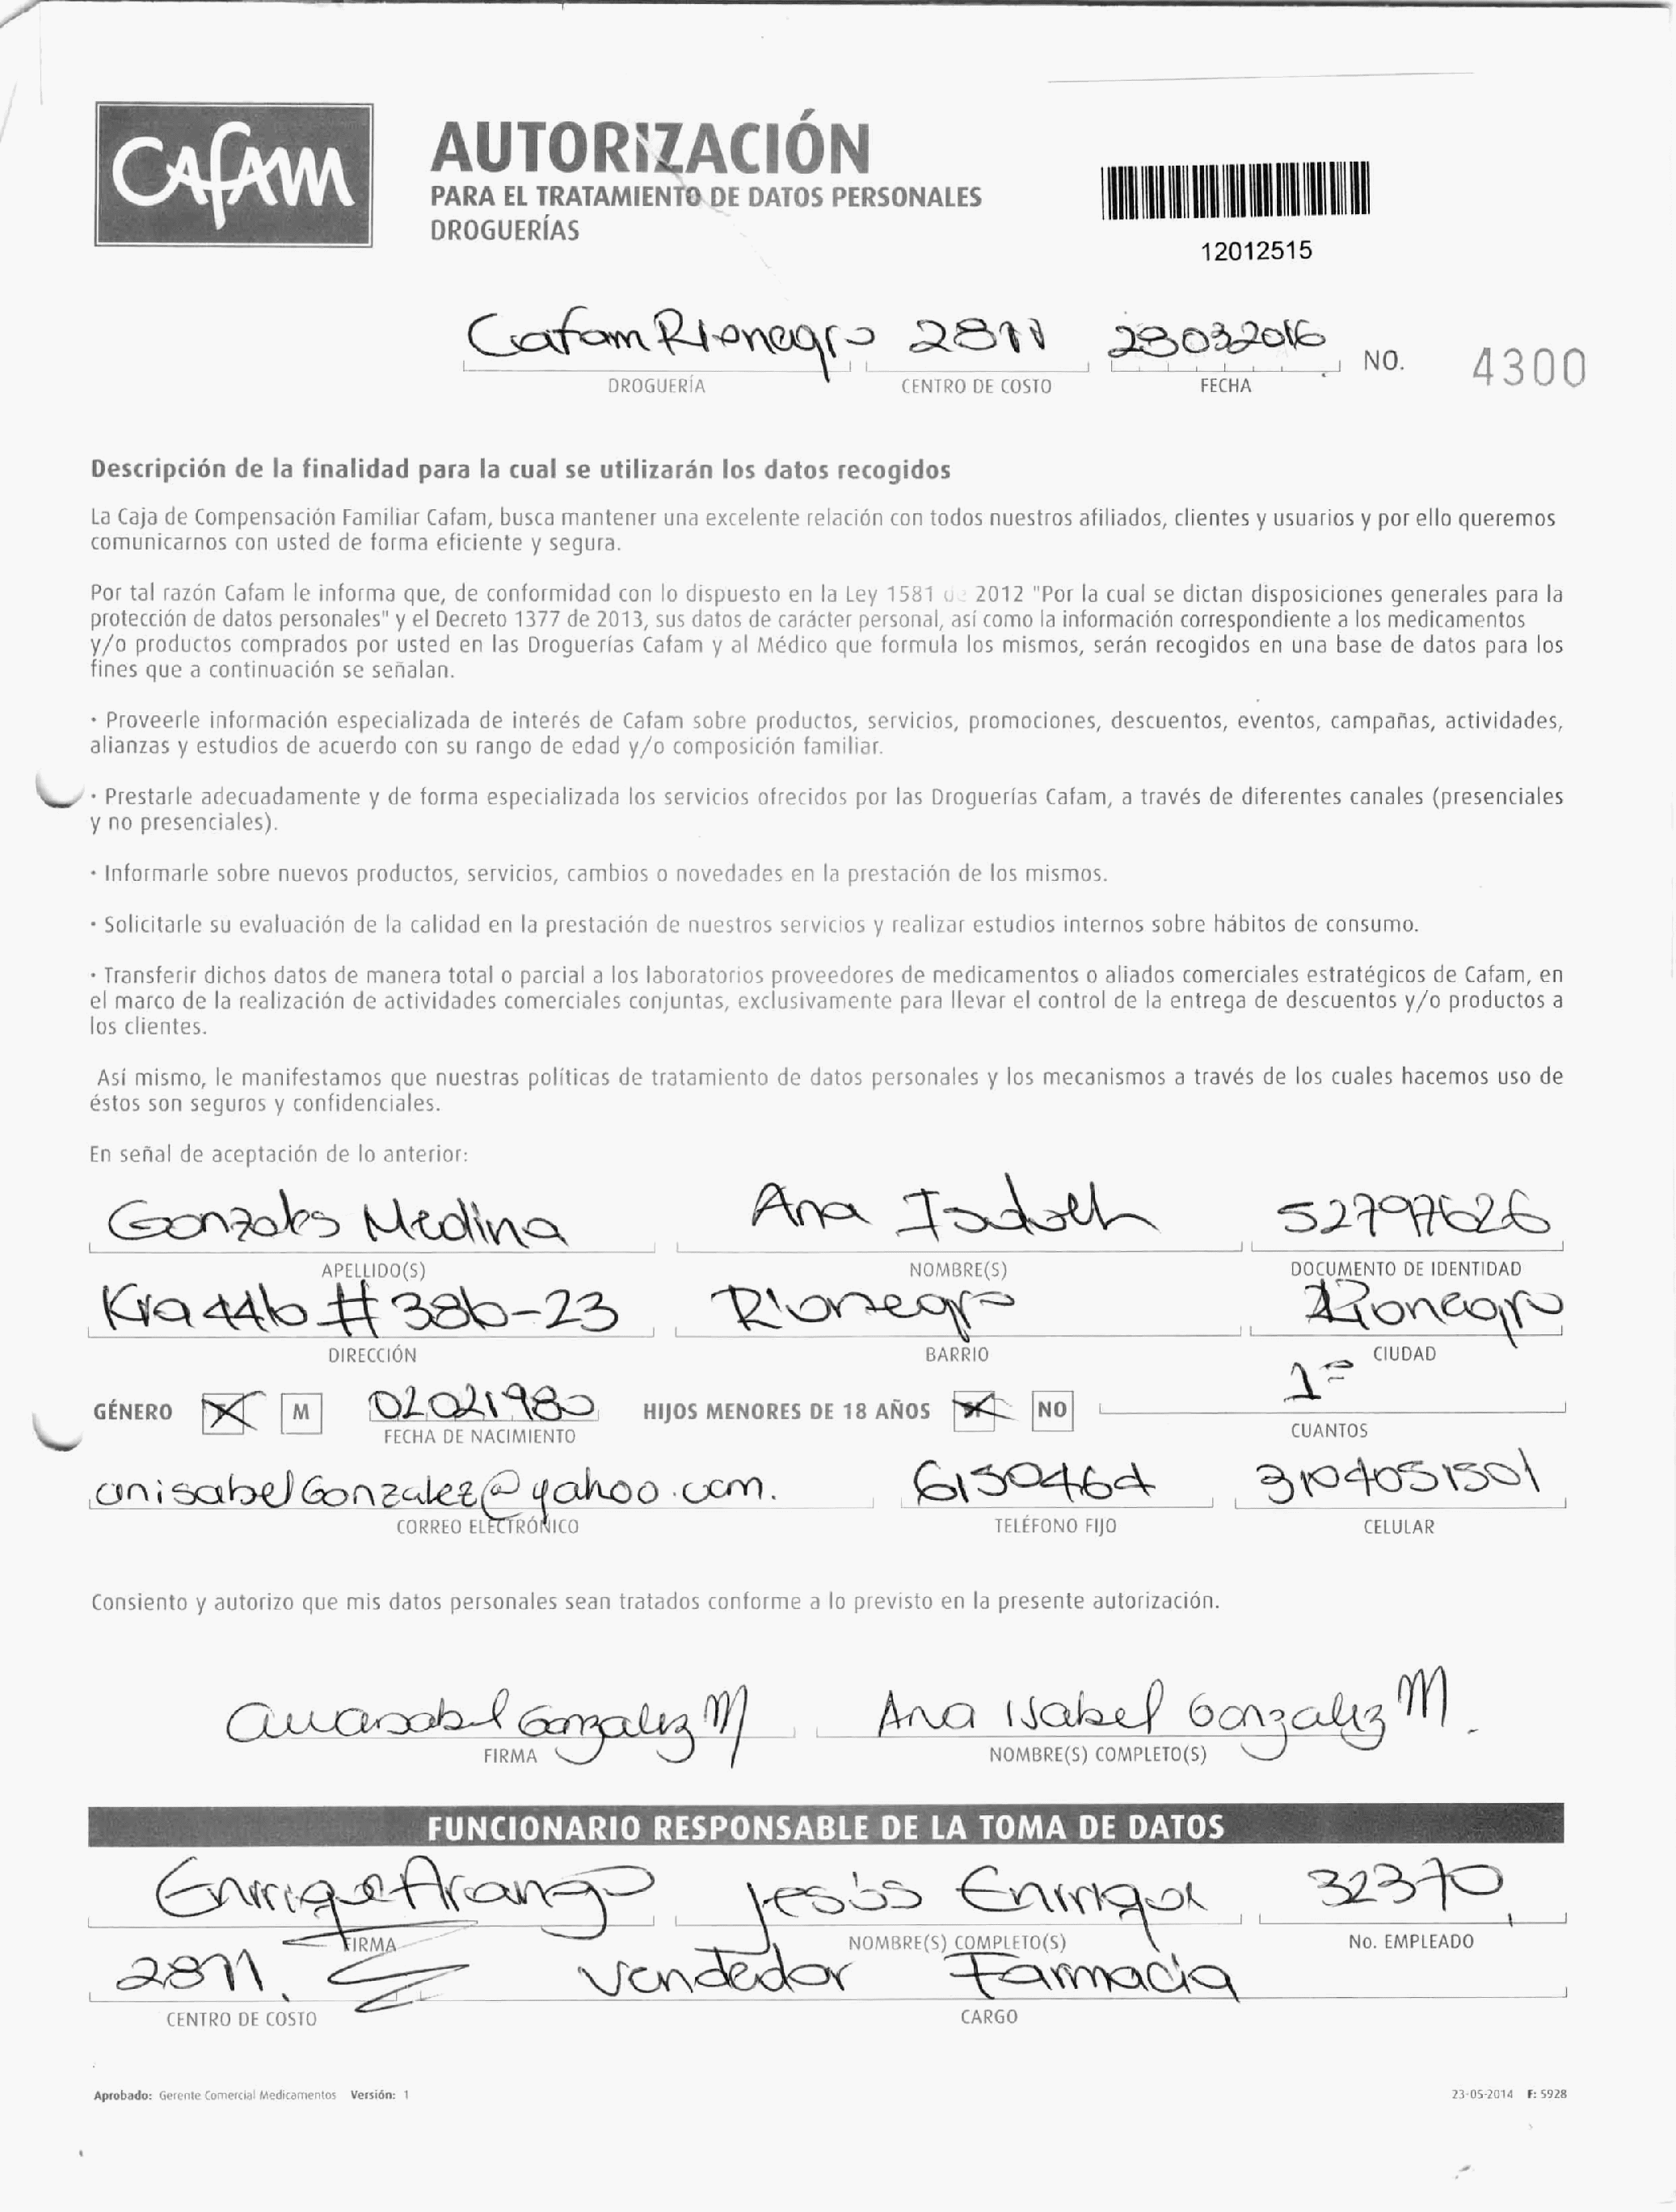 CAFAM
AUTORIZACIÓN
PARA EL TRATAMIENTO DE DATOS PERSONALES
DROGUERÍAS
12012515
Cafam Rionegro 2811 28032016
NO. 4300
DROGUERÍA CENTRO DE COSTO FECHA
Descripción de la finalidad para la cual se utilizarán los datos recogidos
La Caja de Compensación Familiar Cafam, busca mantener una excelente relación con todos nuestros afiliados, clientes y usuarios y por ello queremos
comunicarnos con usted de forma eficiente y segura.
Por tal razón Cafam le informa que, de conformidad con lo dispuesto en la Ley 1581 de 2012 "Por la cual se dictan disposiciones generales para la
protección de datos personales" y el Decreto 1377 de 2013, sus datos de carácter personal, así como la información correspondiente a los medicamentos
y/o productos comprados por usted en las Droguerías Cafam y al Médico que formula los mismos, serán recogidos en una base de datos para los
fines que a continuación se señalan.
· Proveerle información especializada de interés de Cafam sobre productos, servicios, promociones, descuentos, eventos, campañas, actividades,
alianzas y estudios de acuerdo con su rango de edad y/o composición familiar.
· Prestarle adecuadamente y de forma especializada los servicios ofrecidos por las Droguerías Cafam, a través de diferentes canales (presenciales
y no presenciales).
· Informarle sobre nuevos productos, servicios, cambios o novedades en la prestación de los mismos.
· Solicitarle su evaluación de la calidad en la prestación de nuestros servicios y realizar estudios internos sobre hábitos de consumo.
· Transferir dichos datos de manera total o parcial a los laboratorios proveedores de medicamentos o aliados comerciales estratégicos de Cafam, en
el marco de la realización de actividades comerciales conjuntas, exclusivamente para llevar el control de la entrega de descuentos y/o productos a
los clientes.
Así mismo, le manifestamos que nuestras políticas de tratamiento de datos personales y los mecanismos a través de los cuales hacemos uso de
éstos son seguros y confidenciales.
En señal de aceptación de lo anterior:
Gonzales Medina Ana 52797626
APELLIDO(S) NOMBRE(S) DOCUMENTO DE IDENTIDAD
Kra 44b # 38b-23 Rionegro Rionegro
DIRECCIÓN BARRIO CIUDAD
GÉNERO M 02021980 HIJOS MENORES DE 18 AÑOS NO 1
FECHA DE NACIMIENTO CUANTOS
anisabelGonzalez@yahoo.com. 6150464 3104051501
CORREO ELECTRÓNICO TELÉFONO FIJO CELULAR
Consiento y autorizo que mis datos personales sean tratados conforme a lo previsto en la presente autorización.
Anaisabel Gonzalez M Ana Isabel Gonzalez M.
FIRMA NOMBRE(S) COMPLETO(S)
FUNCIONARIO RESPONSABLE DE LA TOMA DE DATOS
Enrique Arango Jesús Enrique 32370
FIRMA NOMBRE(S) COMPLETO(S) No. EMPLEADO
2811. Vendedor Farmacia
CENTRO DE COSTO CARGO
Aprobado: Gerente Comercial Medicamentos Versión: 1
23-05-2014 F: 5928